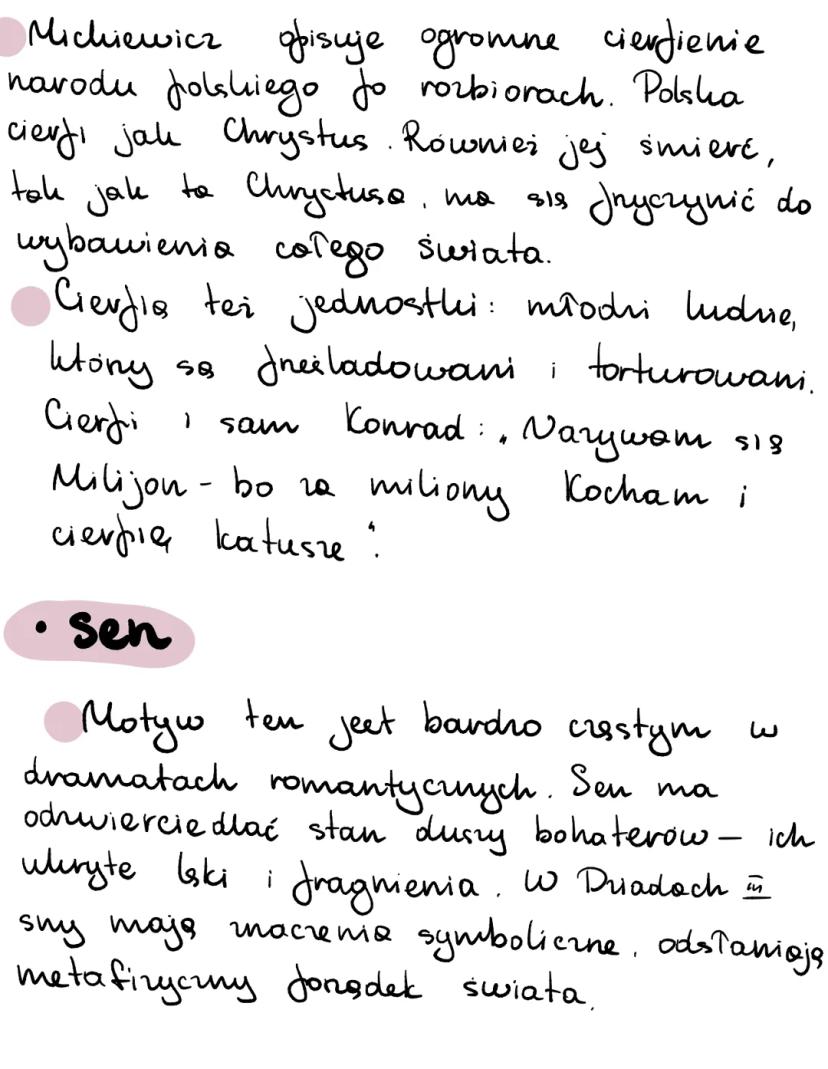 Mickiewicz opisuje ogromne cierpienie
narodu polskiego po rozbiorach. Polska
cierpi jak Chrystus. Również jej śmierć,
tak jak ta Chrystusa, ma się przyczynić do
wybawienia całego świata.
Cierpią też jednostki: młodzi ludzie,
którzy są prześladowani i torturowani.
Cierpi i sam Konrad: „Nazywam się
Milijon - bo za miliony kocham i
cierpię katusze".
• sen
Motyw ten jest bardzo częstym w
dramatach romantycznych. Sen ma
odzwierciedlać stan duszy bohaterów – ich
ukryte lęki i pragnienia. W Dziadach III
sny mają znaczenia symboliczne, odsłaniają
metafizyczny porządek świata.